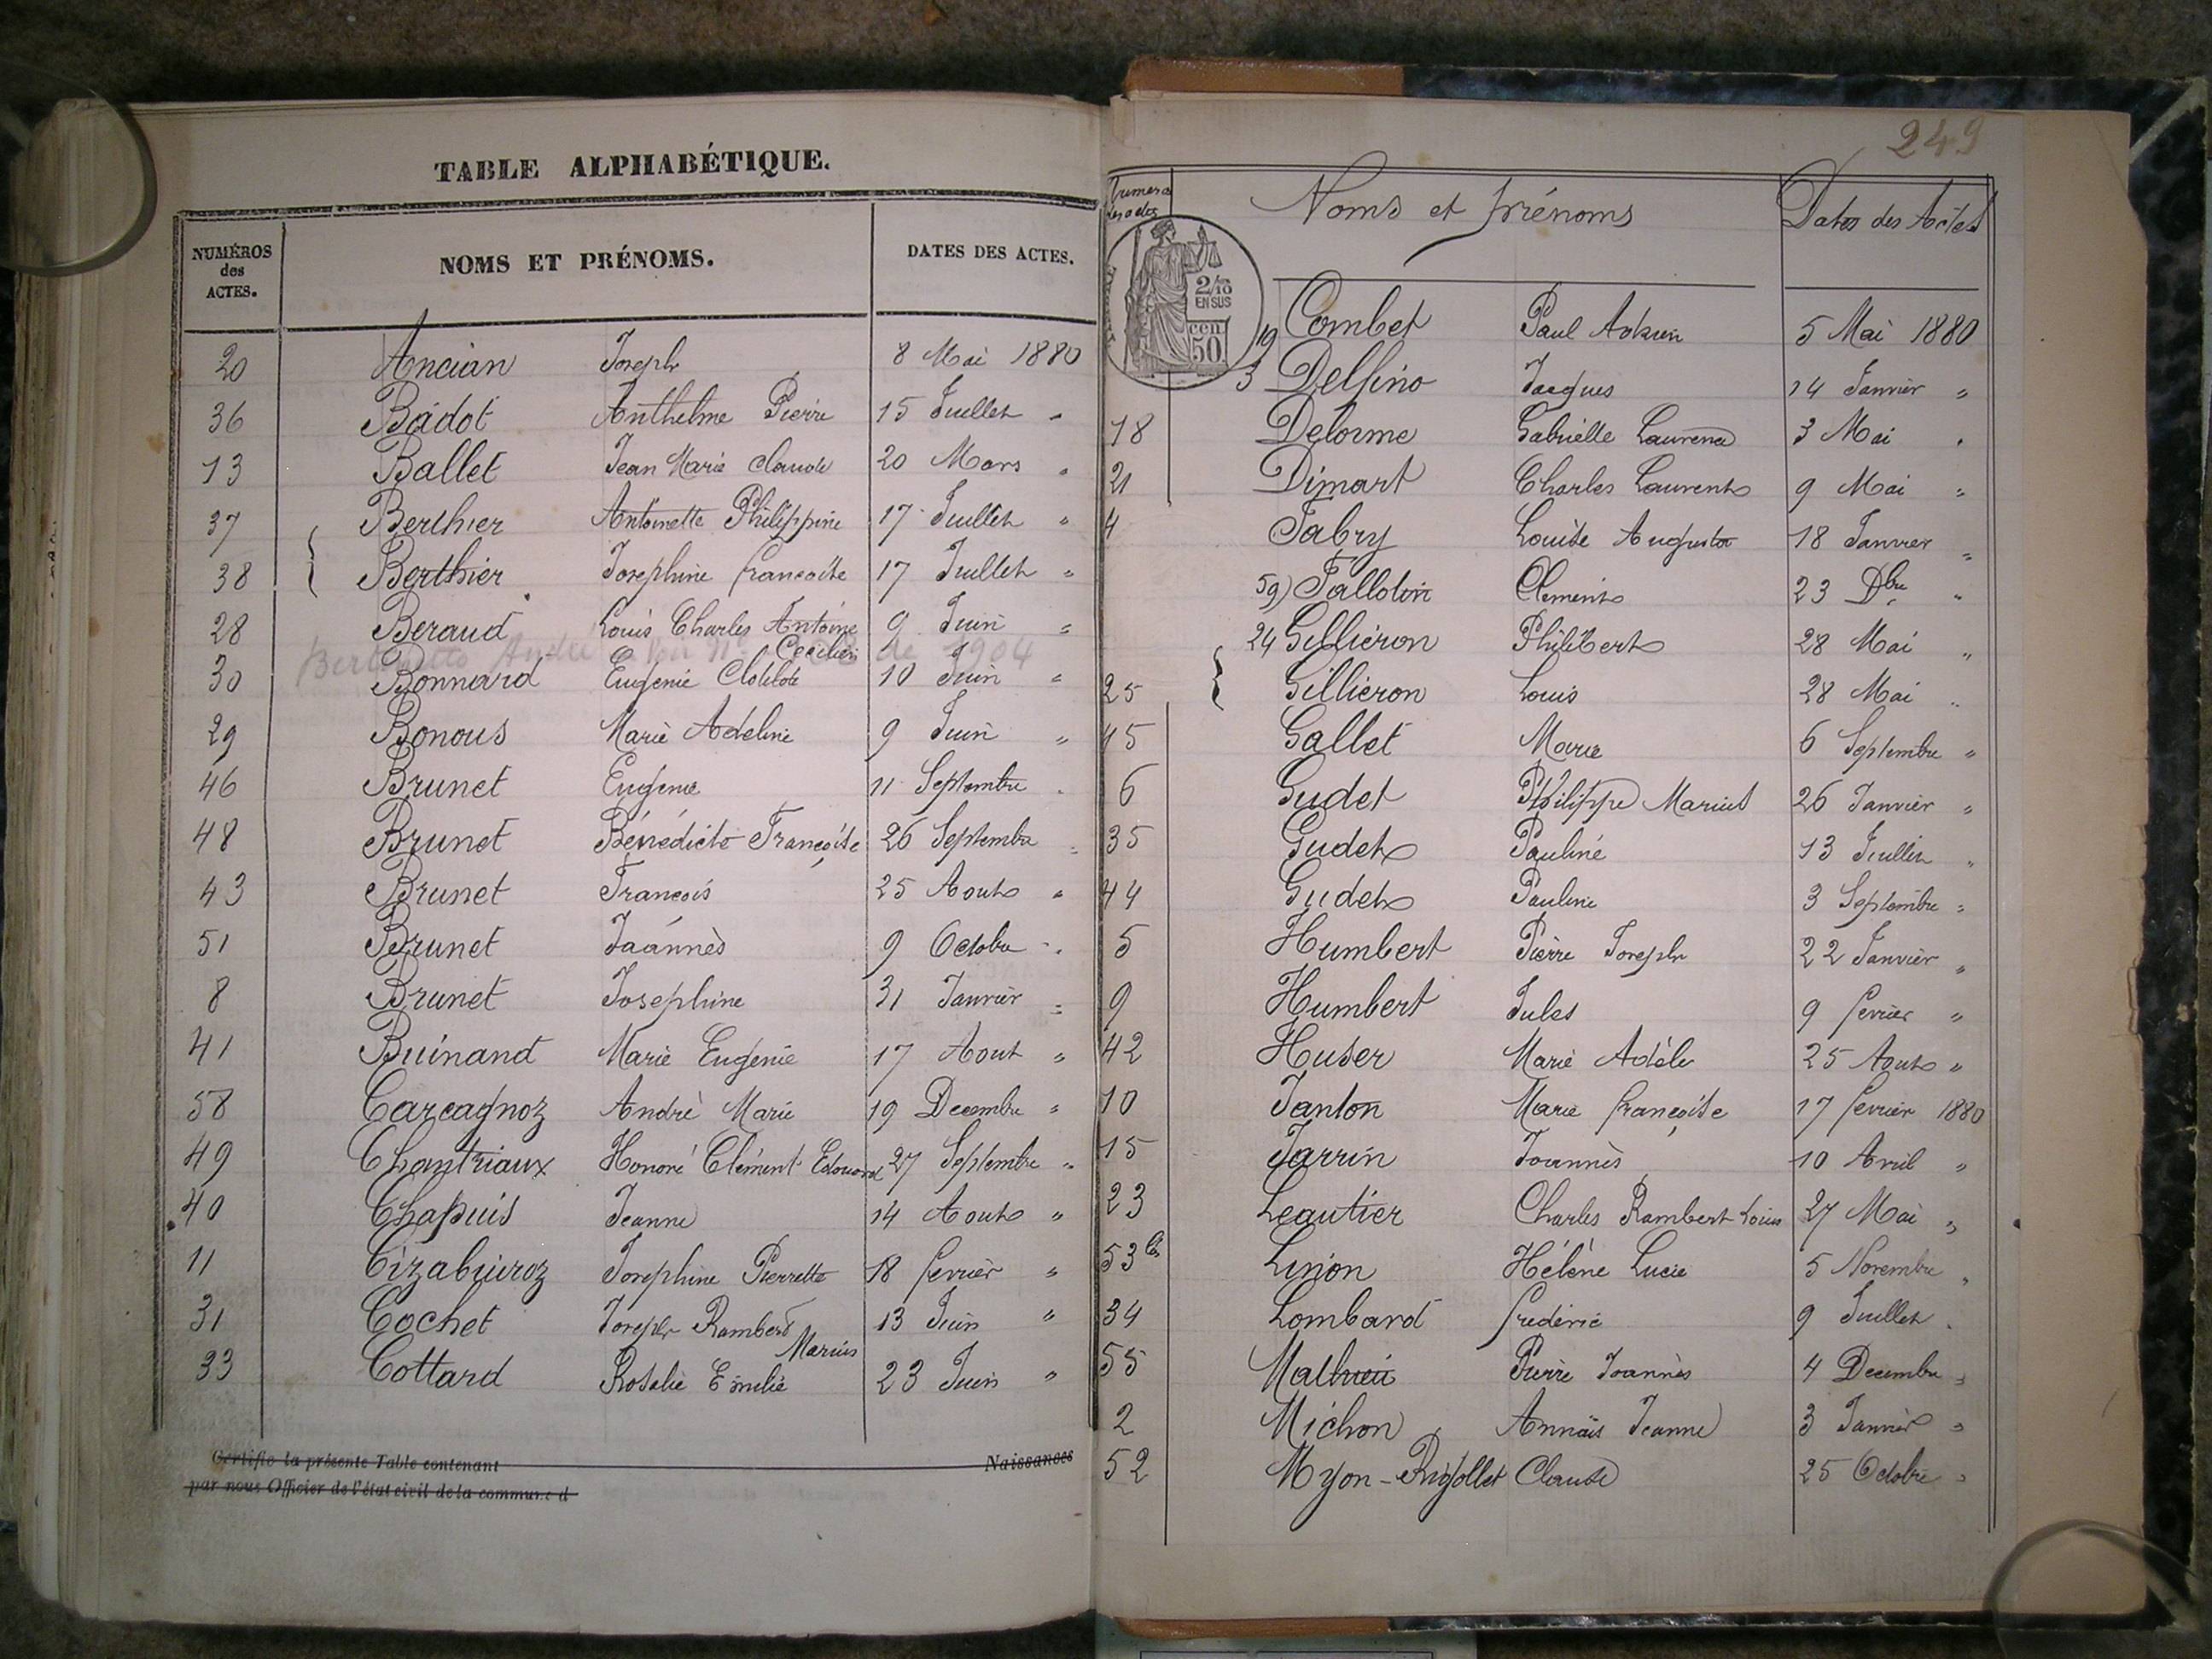 TABLE ALPHABÉTIQUE.
NUMÉROS des ACTES.
NOMS ET PRÉNOMS.
DATES DES ACTES.
20 Ancian Joseph 8 Mai 1880
36 Badot Anthelme Pierre 15 Juillet "
13 Ballet Jean Marie Claude 20 Mars "
37 Berthier Antoinette Philippine 17 Juillet "
38 Berthier Josephine francoise 17 Juillet "
28 Beraud Louis Charles Antoine 9 Juin "
Cecilien
André 1904
30 Bonnard Eugenie Clotilde 10 Juin "
29 Bonous Marie Adeline 9 Juin "
46 Brunet Eugenie 11 Septembre "
48 Brunet Bénédicte Françoise 26 Septembre "
43 Brunet François 25 Aout "
51 Brunet Joánnès 9 Octobre "
8 Brunet Josephine 31 Janvier "
41 Buinand Marie Eugenie 17 Aout "
58 Carcagnoz André Marie 19 Decembre "
49 Chantriaux Honoré Clément Edouard 27 Septembre "
40 Chapuis Jeanne 14 Aout "
11 Cizabuiroz Josephine Pierrette 18 fevrier "
31 Cochet Joseph Rambert 13 Juin "
Marius
33 Cottard Rosalie Emilie 23 Juin "
Certifie la présente Table contenant Naissances
par nous Officier de l'état civil de la commune d
249
Numero des actes
Noms et prénoms
Dates des Actes
2/10 EN SUS
50 cen
19 Combet Paul 5 Mai 1880
3 Delfino Jacques 14 Janvier "
18 Delorme Gabrielle Laurence 3 Mai "
21 Dimart Charles Laurent 9 Mai "
4 Fabry Louise Augusta 18 Janvier "
59) Fallotin Clement 23 Dbre "
24 Gilliéron Philibert 28 Mai "
25 Gilliéron Louis 28 Mai "
45 Gallet Marie 6 Septembre "
6 Gudet Philippe Marius 26 Janvier "
35 Gudet Pauline 13 Juillet "
44 Gudet Pauline 3 Septembre "
5 Humbert Pierre Joseph 22 Janvier "
9 Humbert Jules 9 fevrier "
42 Huser Marie Adèle 25 Aout "
10 Janton Marie françoise 17 fevrier 1880
15 Jarrin Joannès 10 Avril "
23 Leautier Charles Rambert Louis 27 Mai "
53 bis Linon Hélène Lucie 5 Novembre "
34 Lombard frederic 9 Juillet "
55 Mathieu Pierre Joannès 4 Decembre "
2 Michon Annaïs Jeanne 3 Janvier "
52 Myon-Rigollet Claude 25 Octobre "